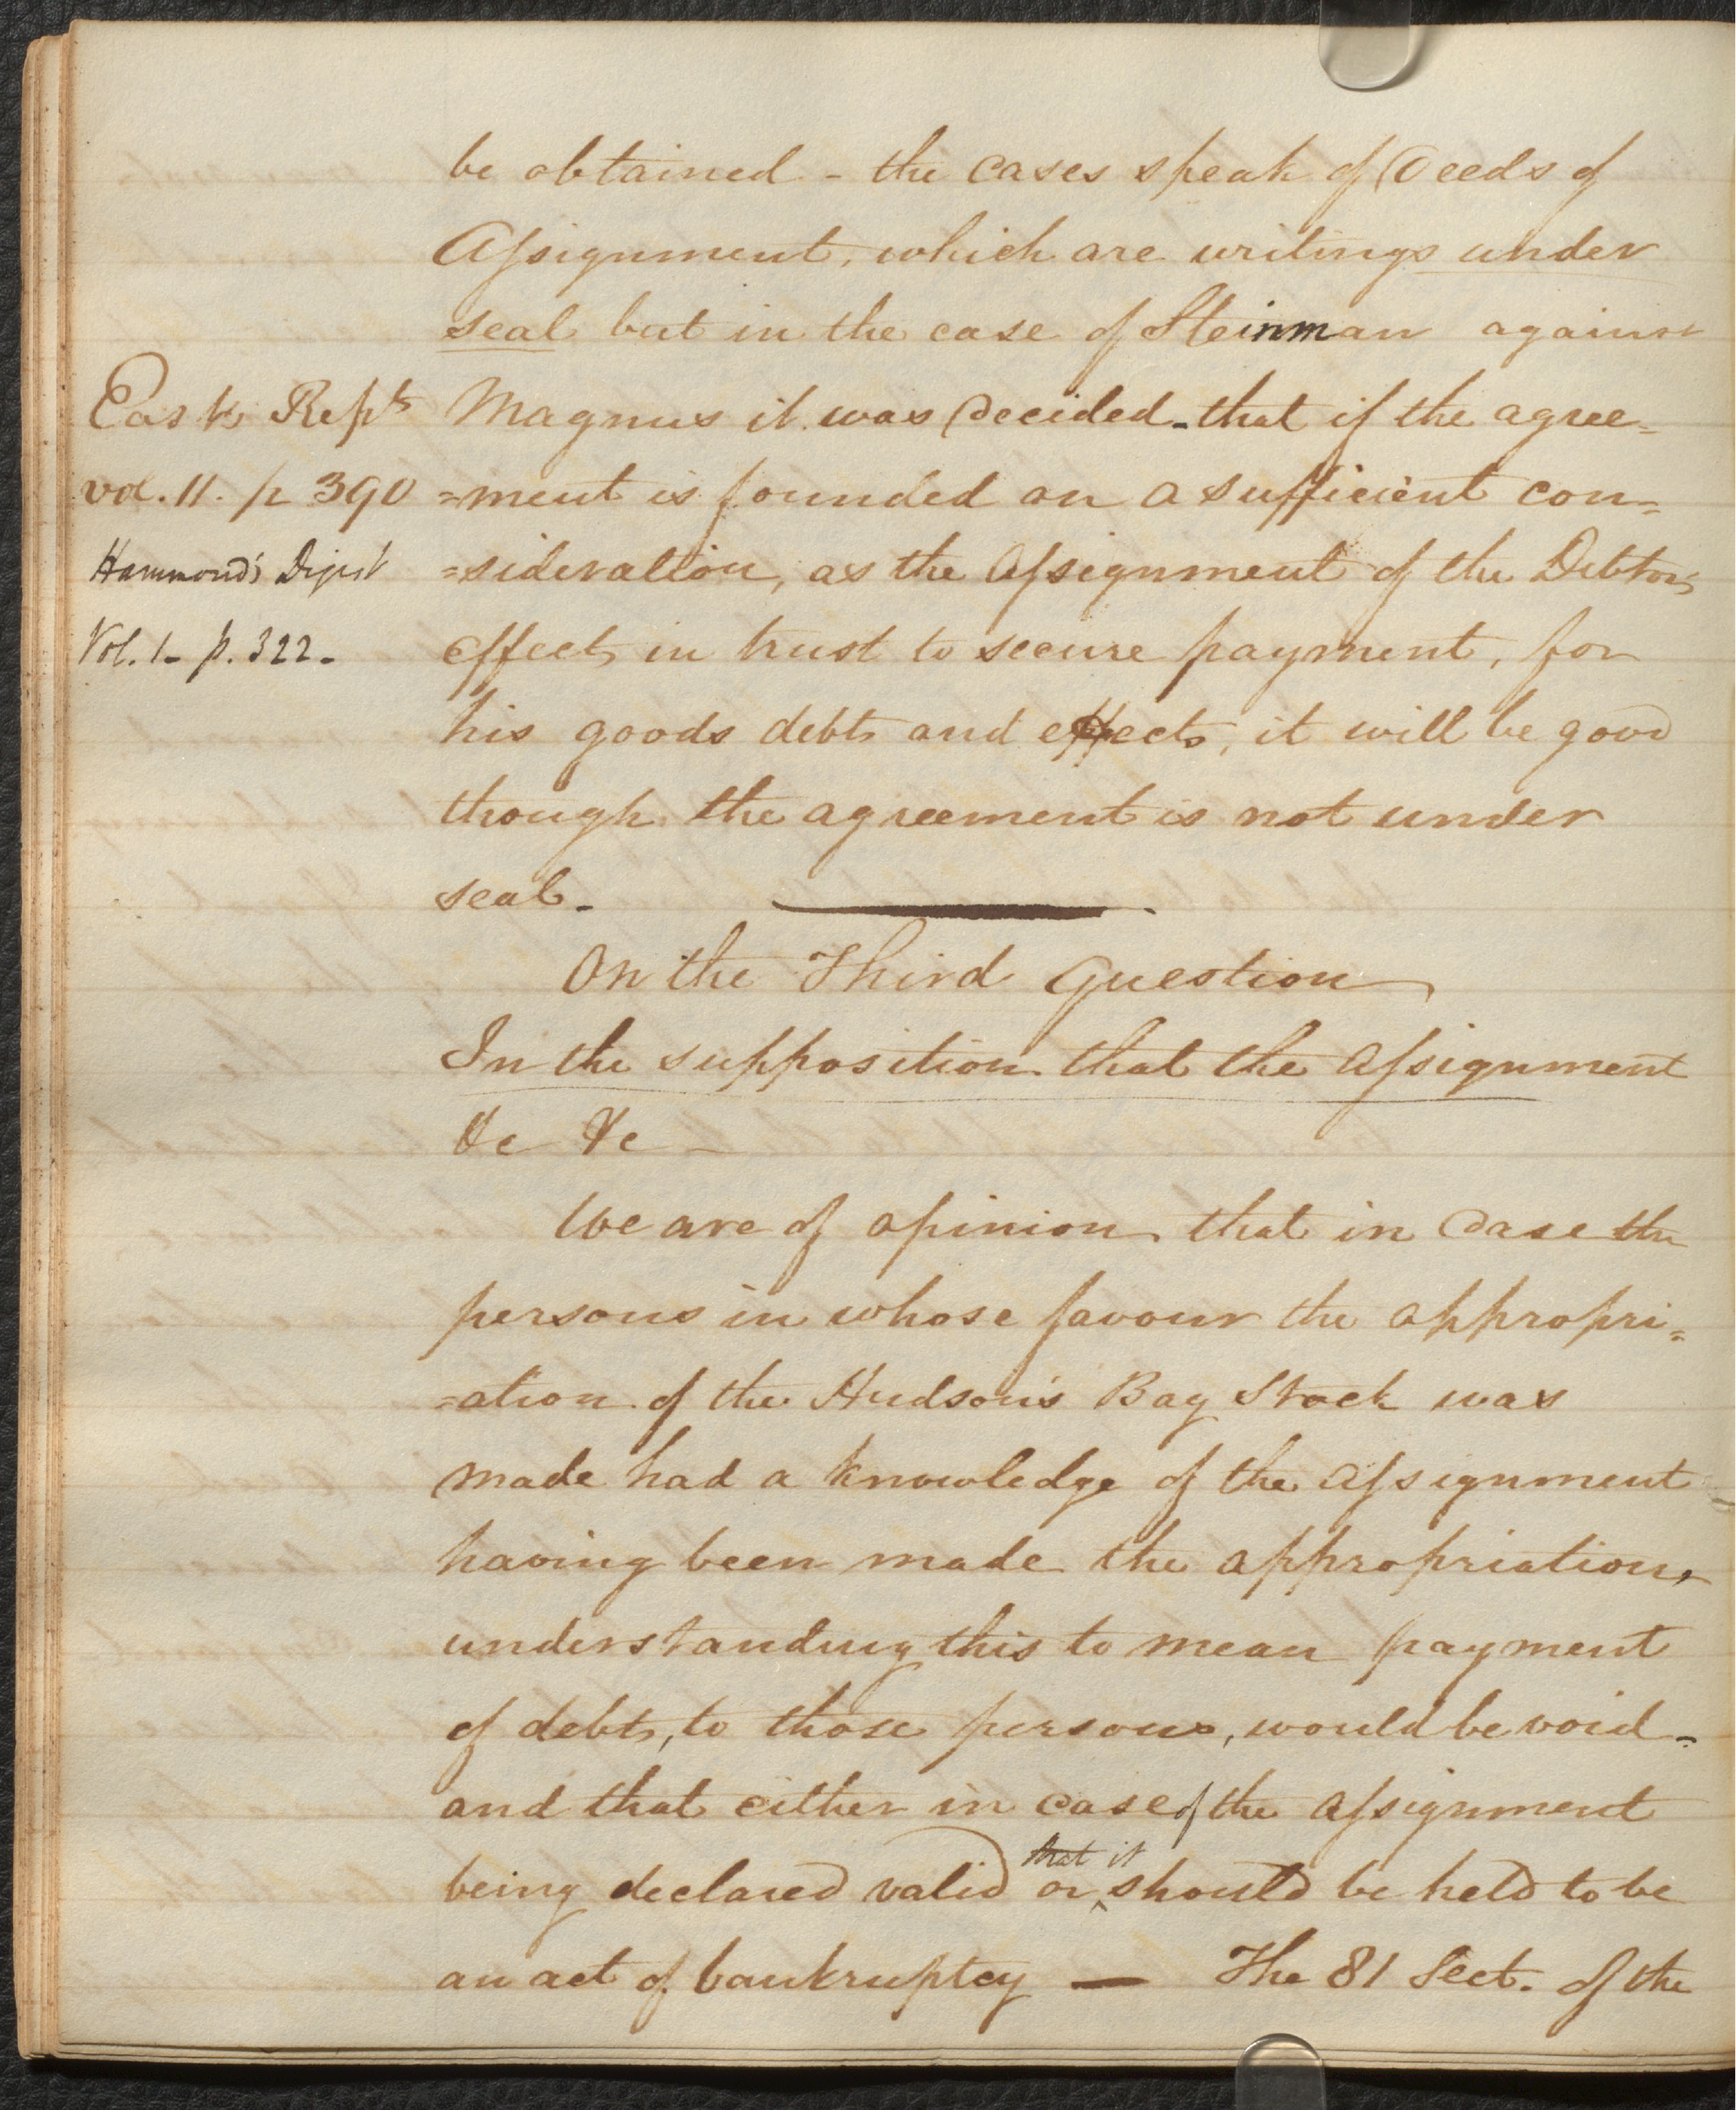 be obtained - the cases speak of Deeds of
Assignment, which are writings under
seal but in the case of Steinman against
East's Repts
Magnus it was decided - that if the agree=
vol. 11. p 390
=ment is founded on a sufficient con=
Hammond's Digest
=sideration, as the Assignment of the Debtors
Vol. 1 - p. 322 -
effects in trust to secure payment, for
his goods debts and effects, it will be good
though the agreement is not under
seal -
On the Third Question
In the supposition that the Assignment
&c &c -
We are of opinion that in case the
persons in whose favour the appropri=
=ation of the Hudson's Bay Stock was
made had a knowledge of the Assignment
having been made the appropriation,
understanding this to mean payment
of debts, to those persons, would be void -
and that either in case of the Assignment
that it
being declared valid or ‸ should be held to be
an act of bankruptcy — The 81 Sect. of the